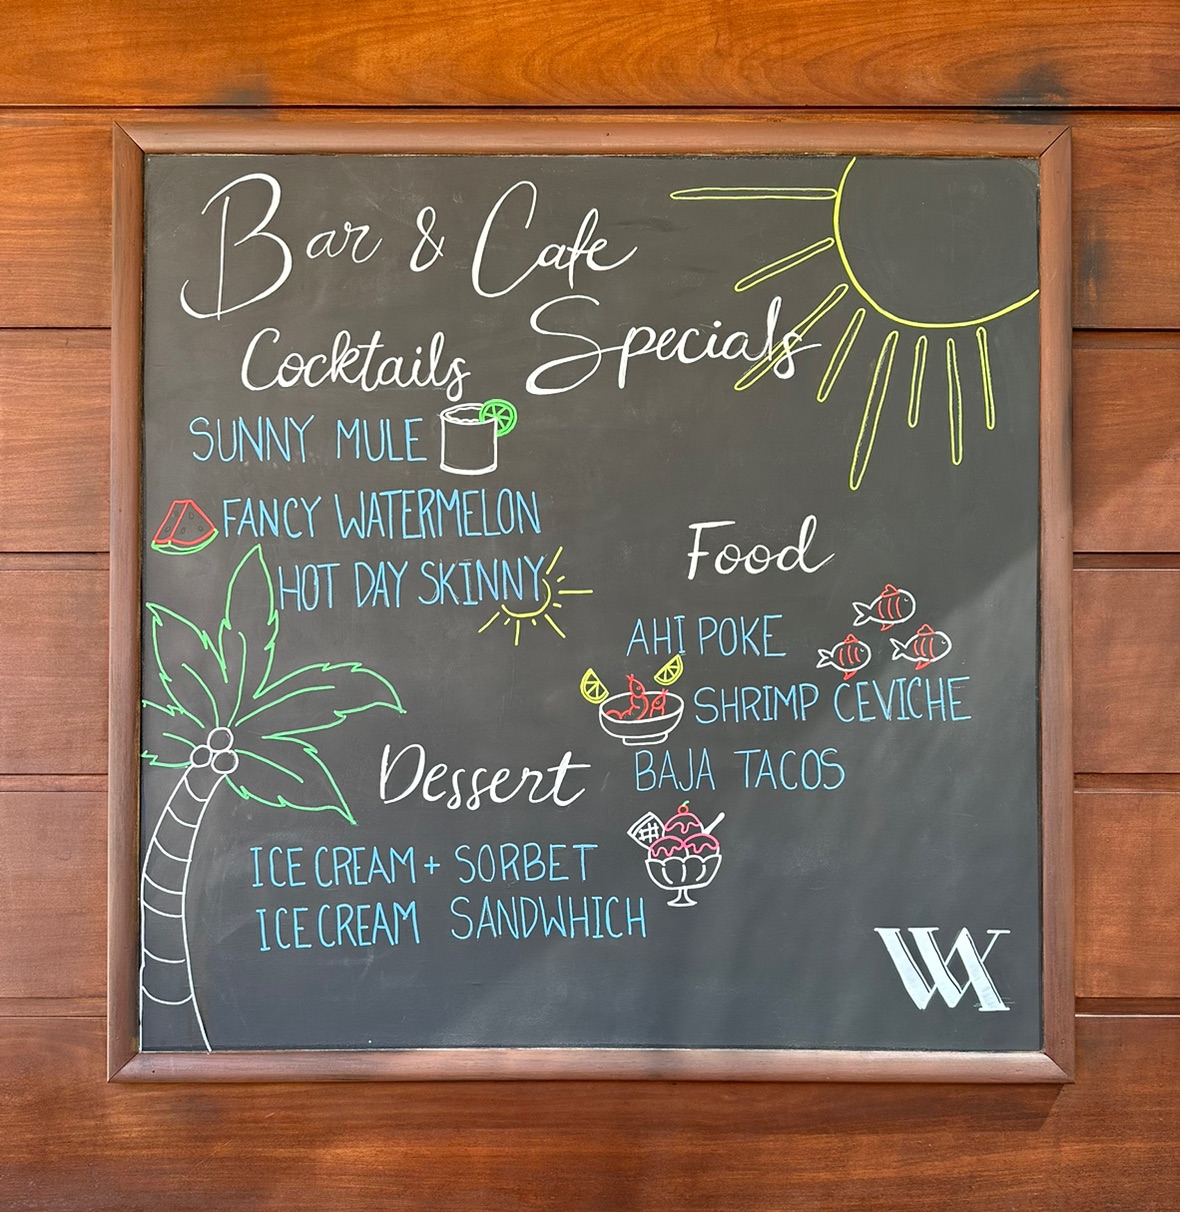 Bar & Cafe
Specials
Cocktails
SUNNY MULE
FANCY WATERMELON
HOT DAY SKINNY
Food
AHI POKE
SHRIMP CEVICHE
BAJA TACOS
Dessert
ICE CREAM + SORBET
ICE CREAM SANDWHICH